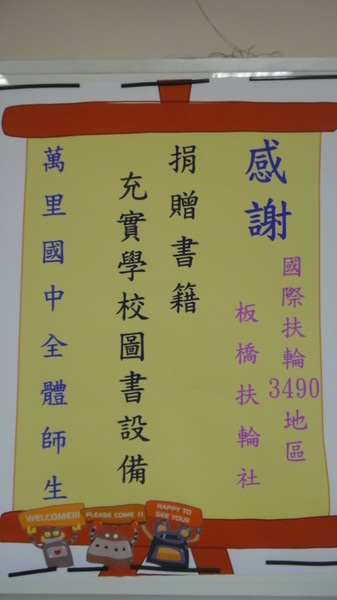 感謝
國際扶輪3490地區
板橋扶輪社
捐贈書籍
充實學校圖書設備
萬里國中全體師生
WELCOME!!!
PLEASE COME !!
HAPPY TO
SEE YOU!!